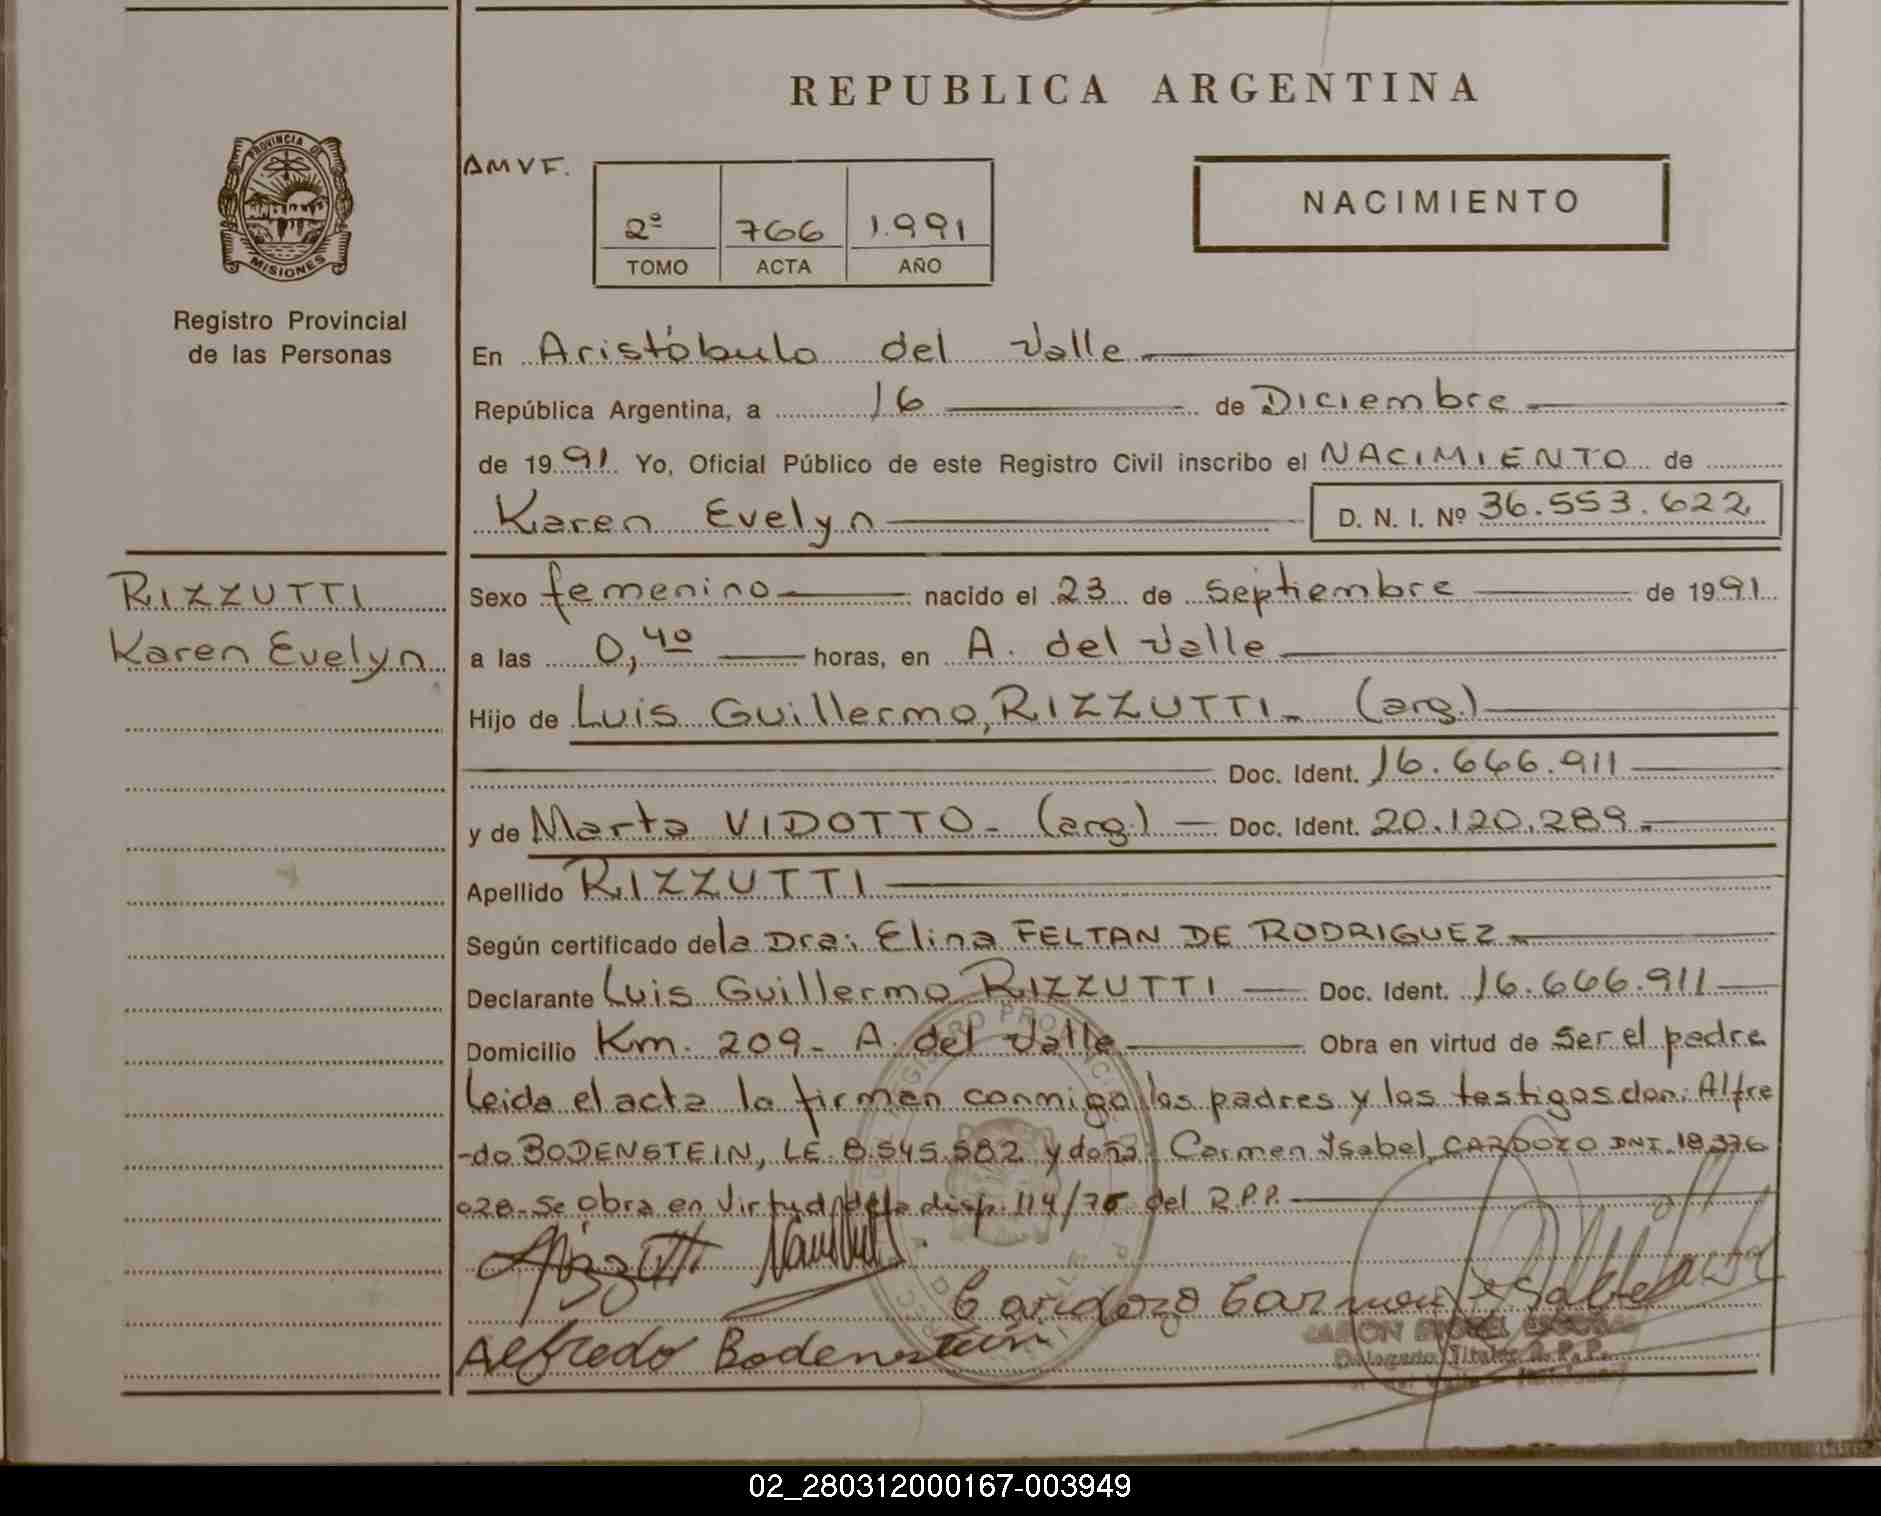 REPUBLICA ARGENTINA
PROVINCIA DE
MISIONES
Registro Provincial
de las Personas
AMVF.
2º 766 1.991
TOMO ACTA AÑO
NACIMIENTO
En Aristóbulo del Valle
República Argentina, a 16 de Diciembre
de 1991. Yo, Oficial Público de este Registro Civil inscribo el NACIMIENTO de
Karen Evelyn D. N. I. Nº 36.553.622
RIZZUTTI
Karen Evelyn
Sexo femenino nacido el 23 de septiembre de 1991
a las 0,40 horas, en A. del Valle
Hijo de Luis Guillermo, RIZZUTTI - (arg.)
Doc. Ident. 16.666.911
y de Marta VIDOTTO - (arg.) — Doc. Ident. 20.120.289.-
Apellido RIZZUTTI
Según certificado de la Dra: Elina FELTAN DE RODRIGUEZ
Declarante Luis Guillermo RIZZUTTI — Doc. Ident. 16.666.911
Domicilio Km. 209 - A. del Valle Obra en virtud de ser el padre
Leida el acta la firman conmigo los padres y los testigos don: Alfre
-do BODENSTEIN, LE. 8.545.582 y doña: Carmen Ysabel CARDOZO DNI. 18.376
028- Se obra en virtud de la disp. 114/76 del R.P.P.
Cardozo Carmen Ysabel
Alfredo Bodenstein
Delegado Titular R.P.P.
02_280312000167-003949